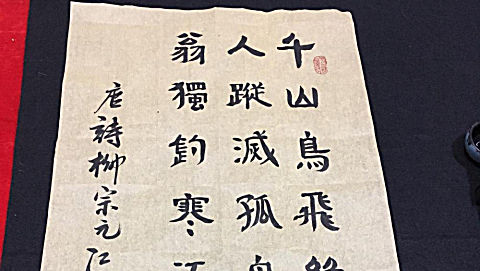 千山鳥飛絕
人蹤滅孤舟
翁獨釣寒江
唐詩柳宗元江